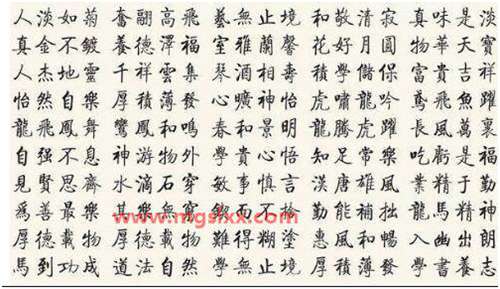 人淡如菊 奮翮高飛 藝無止境 和敬清寂 真味是淡
真金不鍍 養德澤福 室雅蘭馨 花好月圓 物華天寶
人杰地靈 千祥雲集 琴酒相壽 積學儲保 富貴吉祥
怡然自樂 厚積薄發 心曠神怡 虎嘯龍吟 鳶飛魚躍
龍飛鳳舞 鸞鳳和鳴 春和景明 龍騰虎躍 長風萬裏
自强不息 神游物外 學貴心悟 知足常樂 吃虧是福
見賢思齊 水滴石穿 敏事慎言 漢唐雄風 業精于勤
爲善最樂 其樂無窮 而不捨 勤能補拙 龍馬精神
www.mgslxx.com
厚德載物 厚德載物 難得糊塗 惠風和暢 入幽出朗
馬到功成 道法自然 學無止境 厚積薄發 學書養志